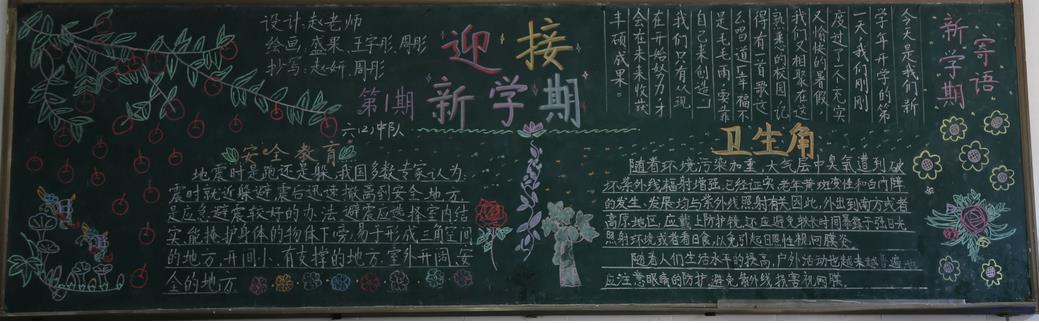 设计:赵老师
绘画:盛果、王宇彤、周彤
抄写:赵妍、周彤
迎接
新学期
第1期
六(2)中队
新学期
寄语
今天是我们新
学年开学的第
一天,我们刚刚
度过了一个充实
又愉快的暑假,
我们又相聚在这
熟悉的校园。记
得有一首歌这
么唱道:"幸福不
是毛毛雨,要靠
自己来创造。"
我们只有从现
在开始努力,才
会在未来收获
丰硕成果。
安全教育
地震时是跑还是躲,我国多数专家认为:
震时就近躲避,震后迅速撤离到安全地方,
是应急避震较好的办法。避震应选择室内结
实、能掩护身体的物体下旁,易于形成三角空间
的地方,开间小、有支撑的地方,室外开阔、安
全的地方
卫生角
随着环境污染加重,大气层中臭氧遭到破
坏,紫外线辐射增强。已经证实,老年黄斑变性和白内障
的发生、发展均与紫外线照射有关。因此,外出到南方或者
高原地区,应戴上防护镜,还应避免较长时间暴露于强日光
照射环境或者看日食,以免引起日照性视网膜炎。
随着人们生活水平的提高,户外活动也越来越普遍
应注意眼睛的防护,避免紫外线损害视网膜。